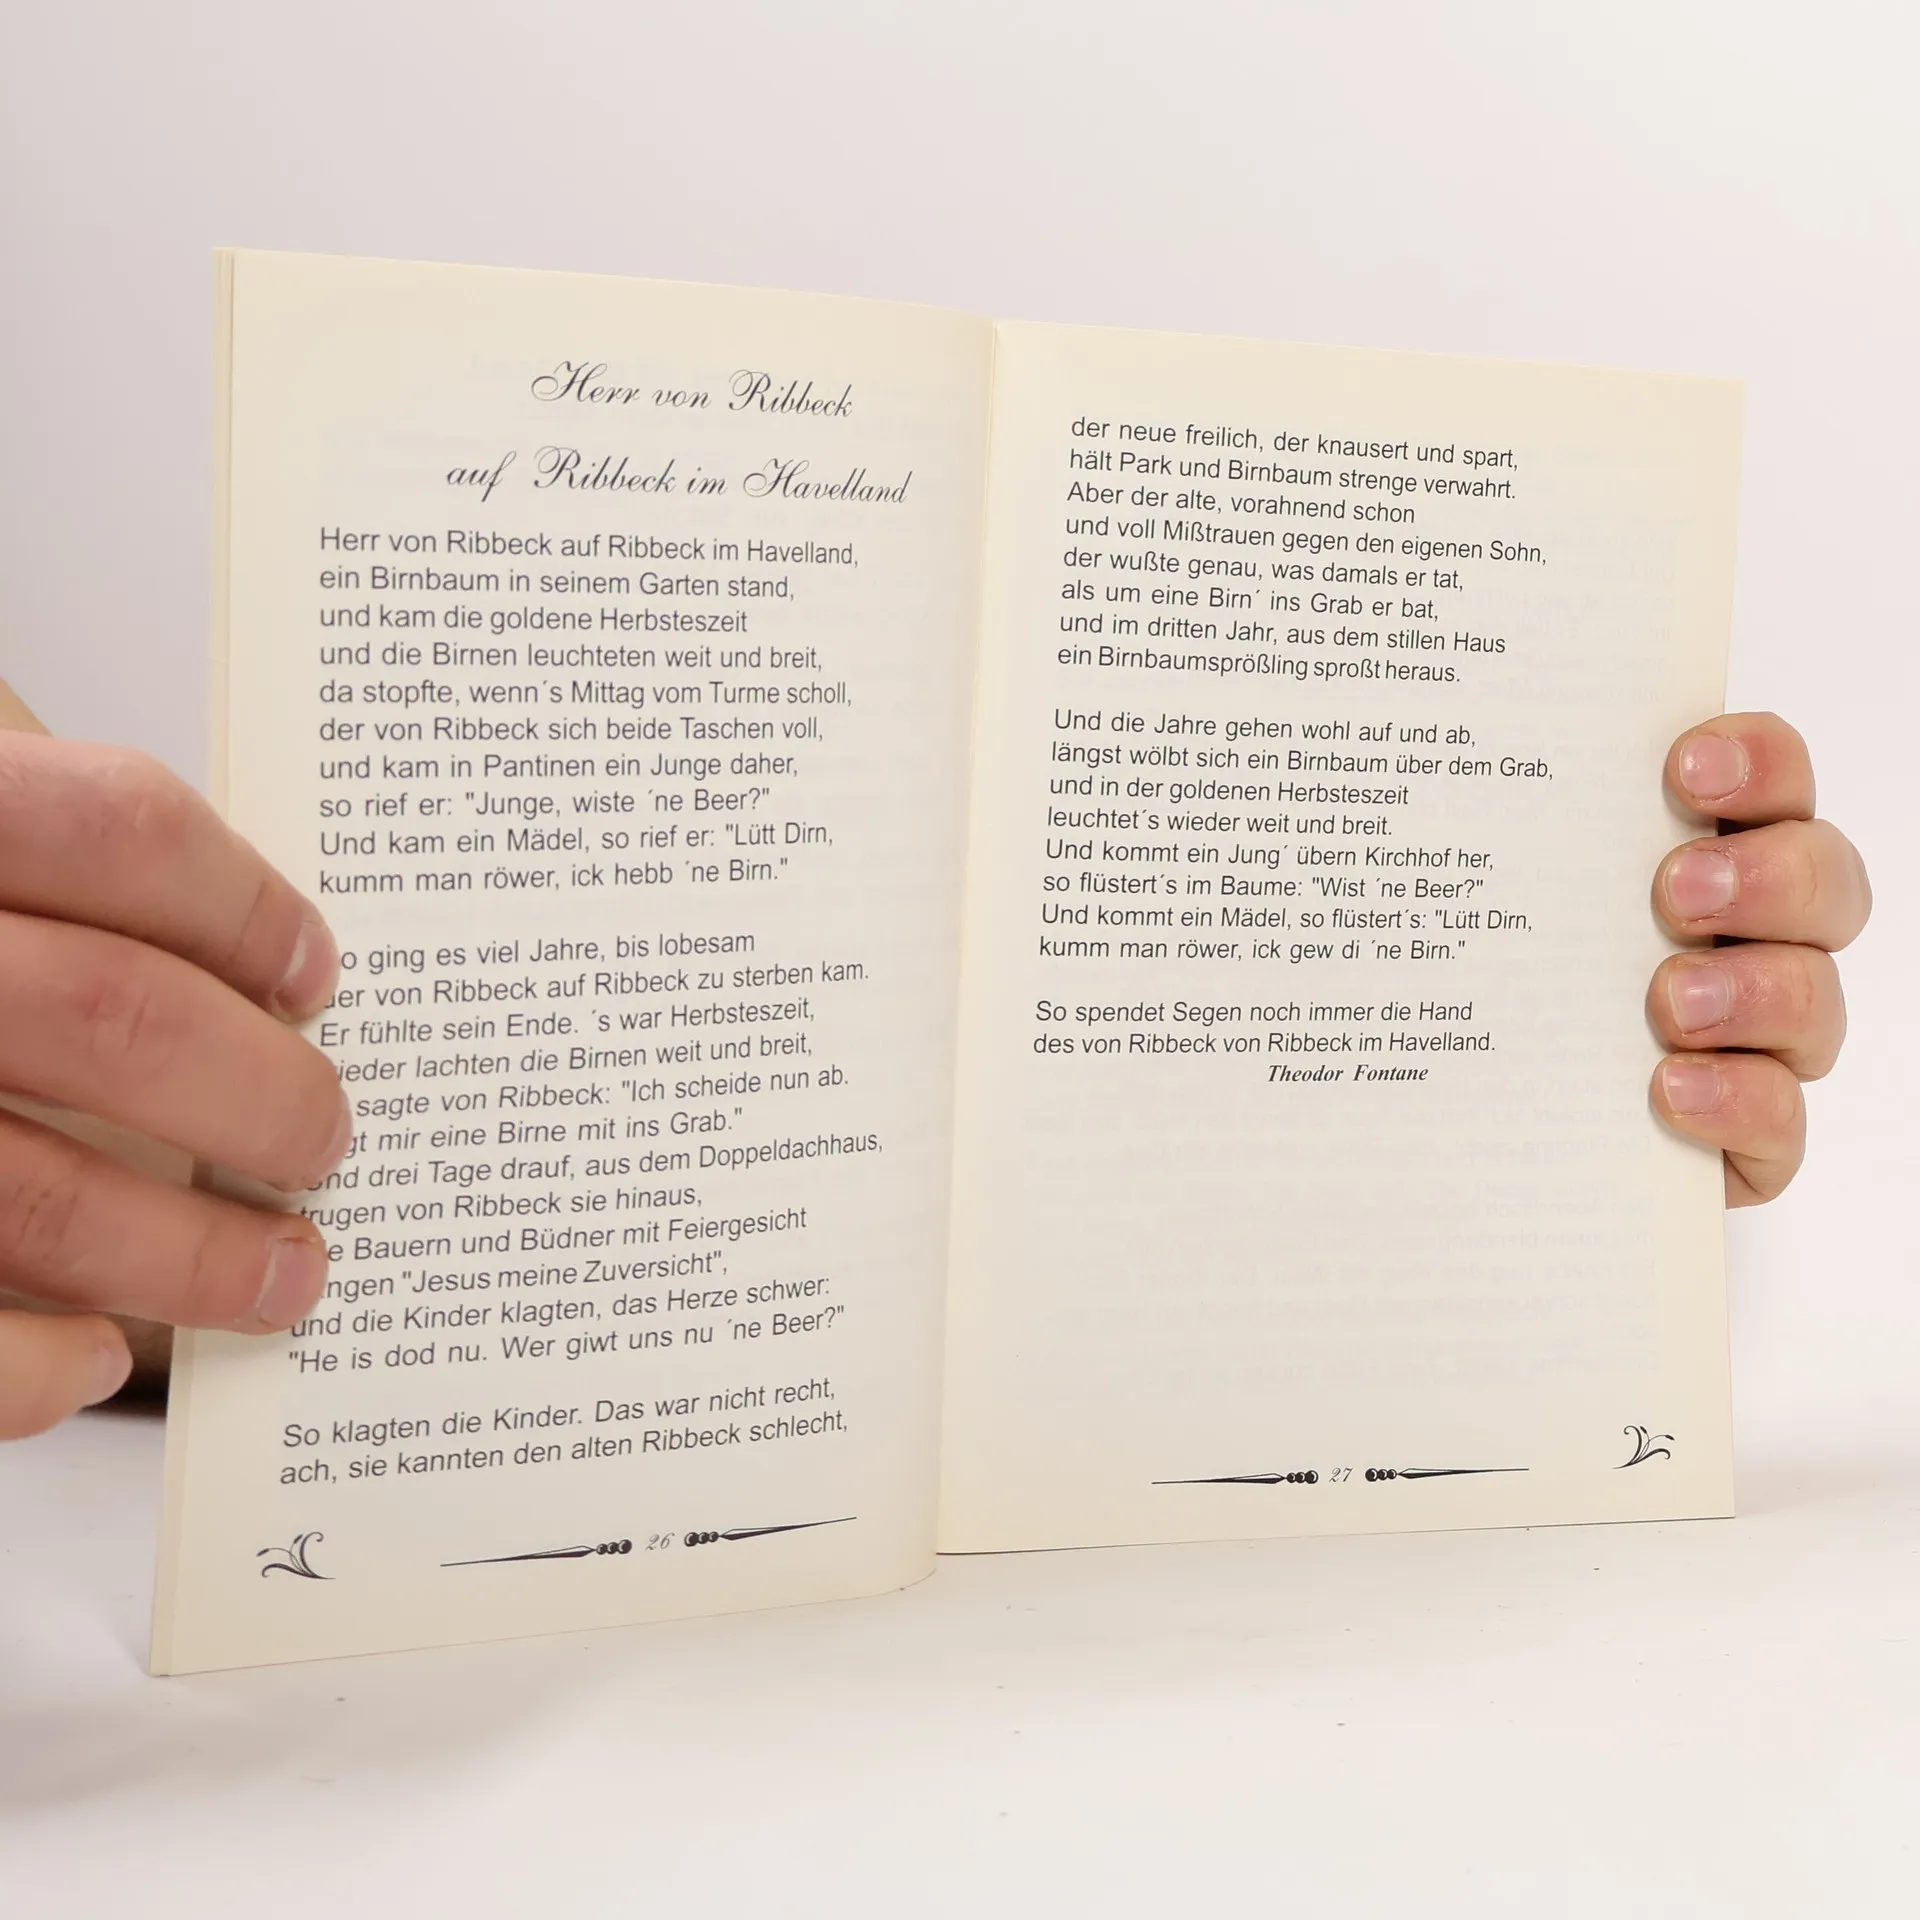 Herr von Ribbeck
auf Ribbeck im Havelland
Herr von Ribbeck auf Ribbeck im Havelland,
ein Birnbaum in seinem Garten stand,
und kam die goldene Herbsteszeit
und die Birnen leuchteten weit und breit,
da stopfte, wenn´s Mittag vom Turme scholl,
der von Ribbeck sich beide Taschen voll,
und kam in Pantinen ein Junge daher,
so rief er: "Junge, wiste ´ne Beer?"
Und kam ein Mädel, so rief er: "Lütt Dirn,
kumm man röwer, ick hebb ´ne Birn."
ging es viel Jahre, bis lobesam
der von Ribbeck auf Ribbeck zu sterben kam.
Er fühlte sein Ende. ´s war Herbsteszeit,
lachten die Birnen weit und breit,
sagte von Ribbeck: "Ich scheide nun ab.
mir eine Birne mit ins Grab."
und drei Tage drauf, aus dem Doppeldachhaus,
trugen von Ribbeck sie hinaus,
Bauern und Büdner mit Feiergesicht
"Jesus meine Zuversicht",
und die Kinder klagten, das Herze schwer:
"He is dod nu. Wer giwt uns nu ´ne Beer?"
So klagten die Kinder. Das war nicht recht,
ach, sie kannten den alten Ribbeck schlecht,
26
der neue freilich, der knausert und spart,
hält Park und Birnbaum strenge verwahrt.
Aber der alte, vorahnend schon
und voll Mißtrauen gegen den eigenen Sohn,
der wußte genau, was damals er tat,
als um eine Birn´ ins Grab er bat,
und im dritten Jahr, aus dem stillen Haus
ein Birnbaumsprößling sproßt heraus.
Und die Jahre gehen wohl auf und ab,
längst wölbt sich ein Birnbaum über dem Grab,
und in der goldenen Herbsteszeit
leuchtet´s wieder weit und breit.
Und kommt ein Jung´ übern Kirchhof her,
so flüstert´s im Baume: "Wist ´ne Beer?"
Und kommt ein Mädel, so flüstert´s: "Lütt Dirn,
kumm man röwer, ick gew di ´ne Birn."
So spendet Segen noch immer die Hand
des von Ribbeck von Ribbeck im Havelland.
Theodor Fontane
27